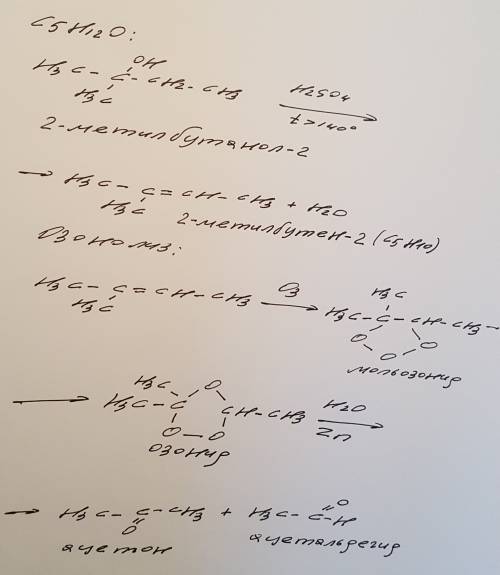 C5H12O:
OH
H3C - C - CH2 - CH3
H3C
H2SO4
t>140°
2-метилбутанол-2
→ H3C - C = CH - CH3 + H2O
H3C
2-метилбутен-2 (C5H10)
Озонолиз:
H3C - C = CH - CH3
H3C
O3
H3C
H3C - C - CH - CH3 →
O O O
мольозонид
H3C
H3C - C
O
CH - CH3
O - O
озонид
H2O
Zn
→ H3C - C - CH3 + H3C - C
O
O
H
ацетон
ацетальдегид